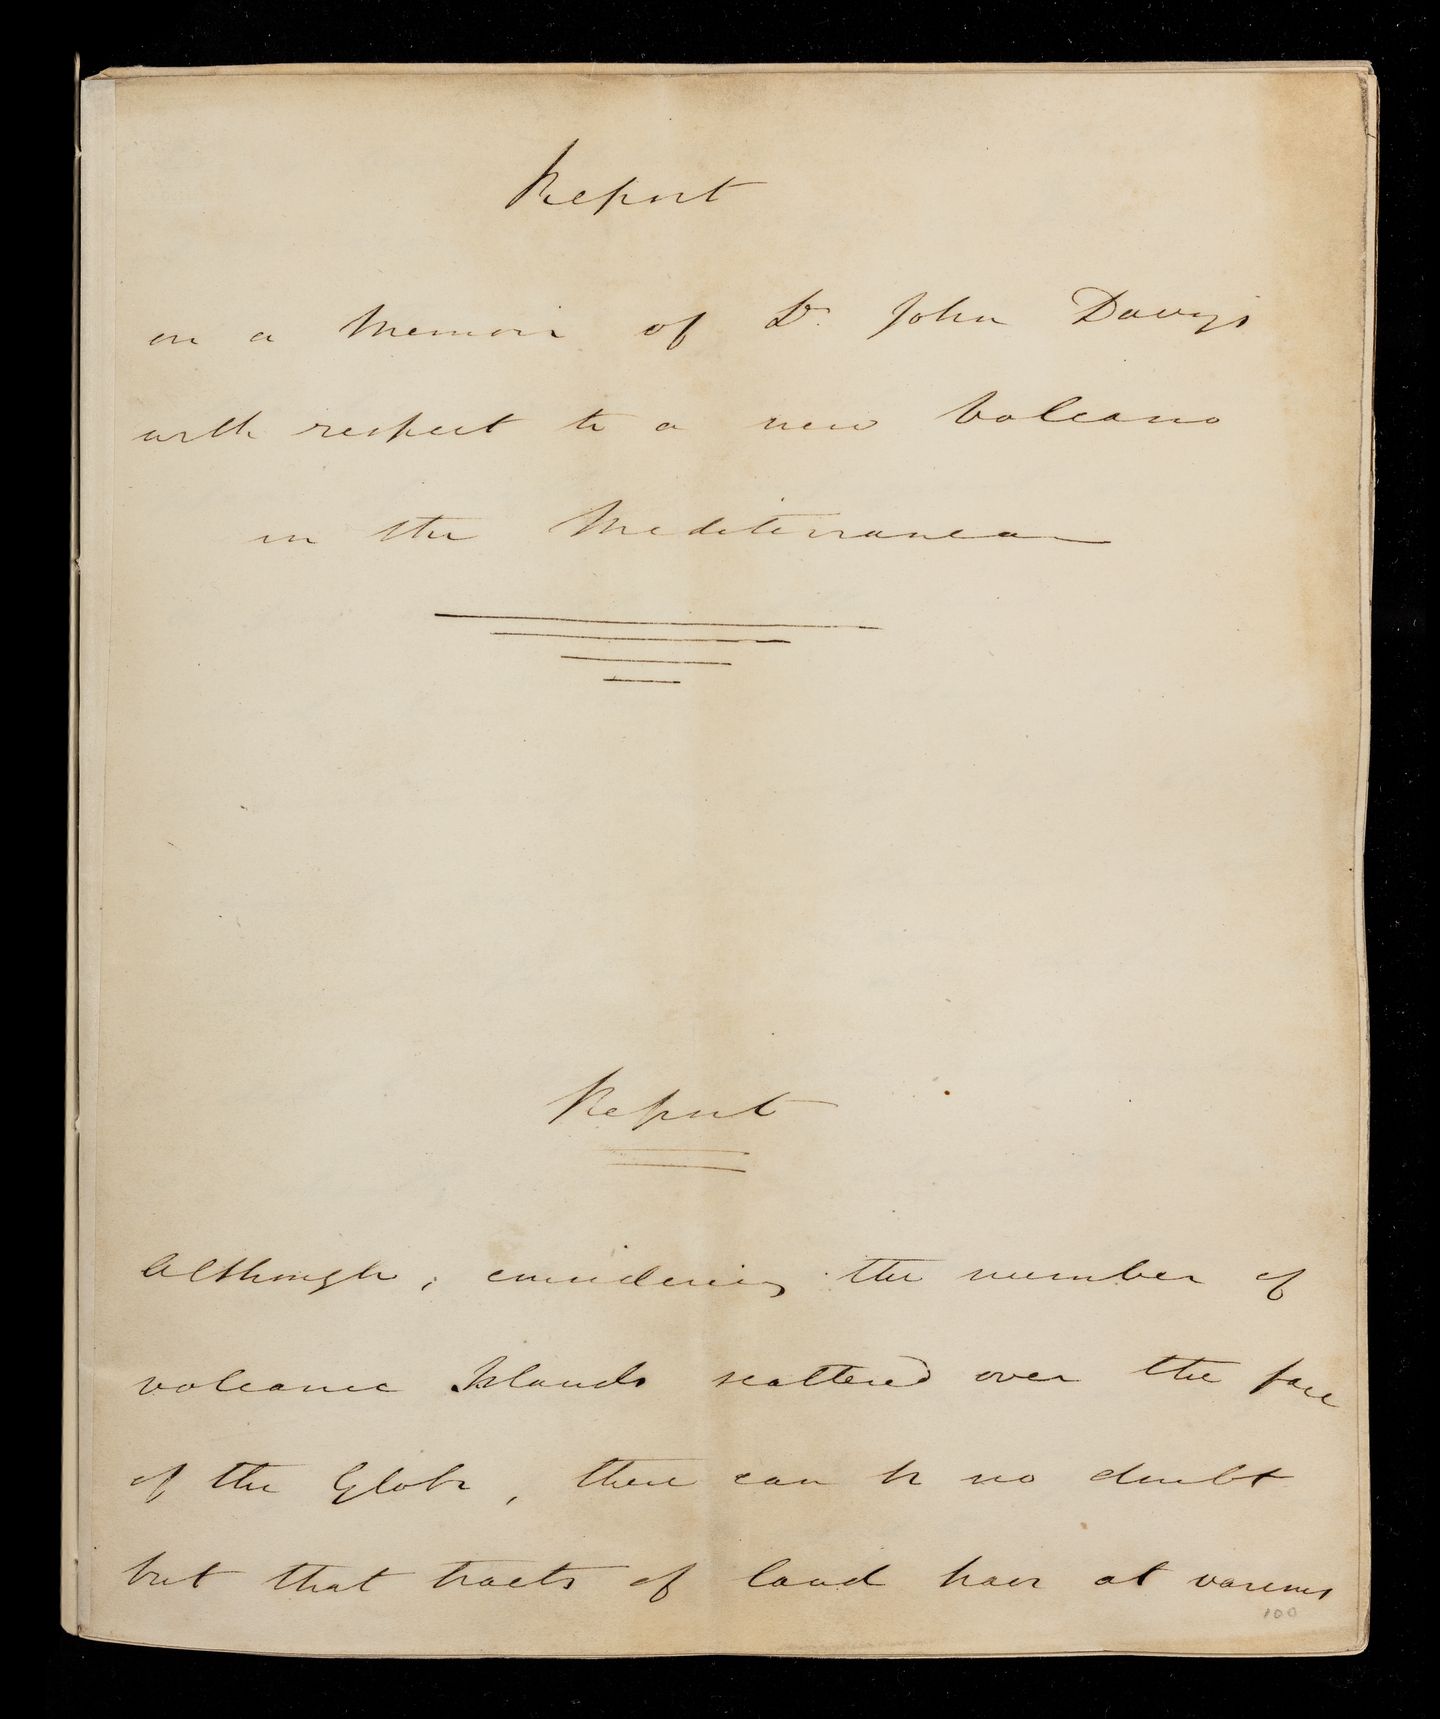 Report
on a Memoir of Dr. John Davy's
with respect to a new Volcano
in the Mediterranean
Report
Although, considering the number of
volcanic Islands scattered over the face
of the Globe, there can be no doubt
but that tracts of land have at various
100